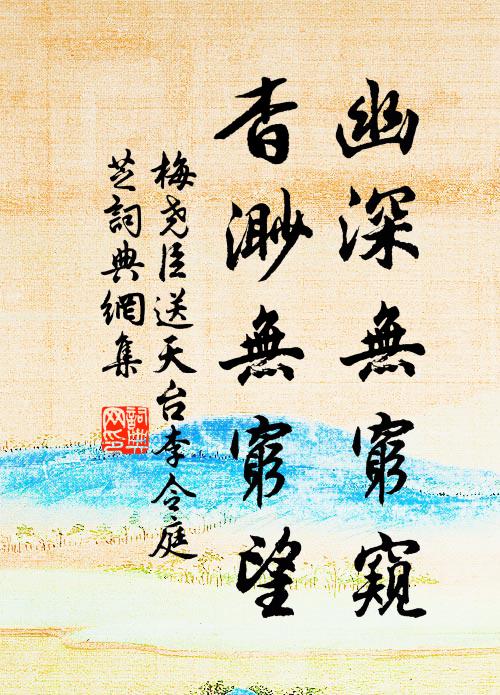 幽深無窮窺
杳渺無窮望
梅堯臣送天台李令庭
芝詞典網集
詞典網印